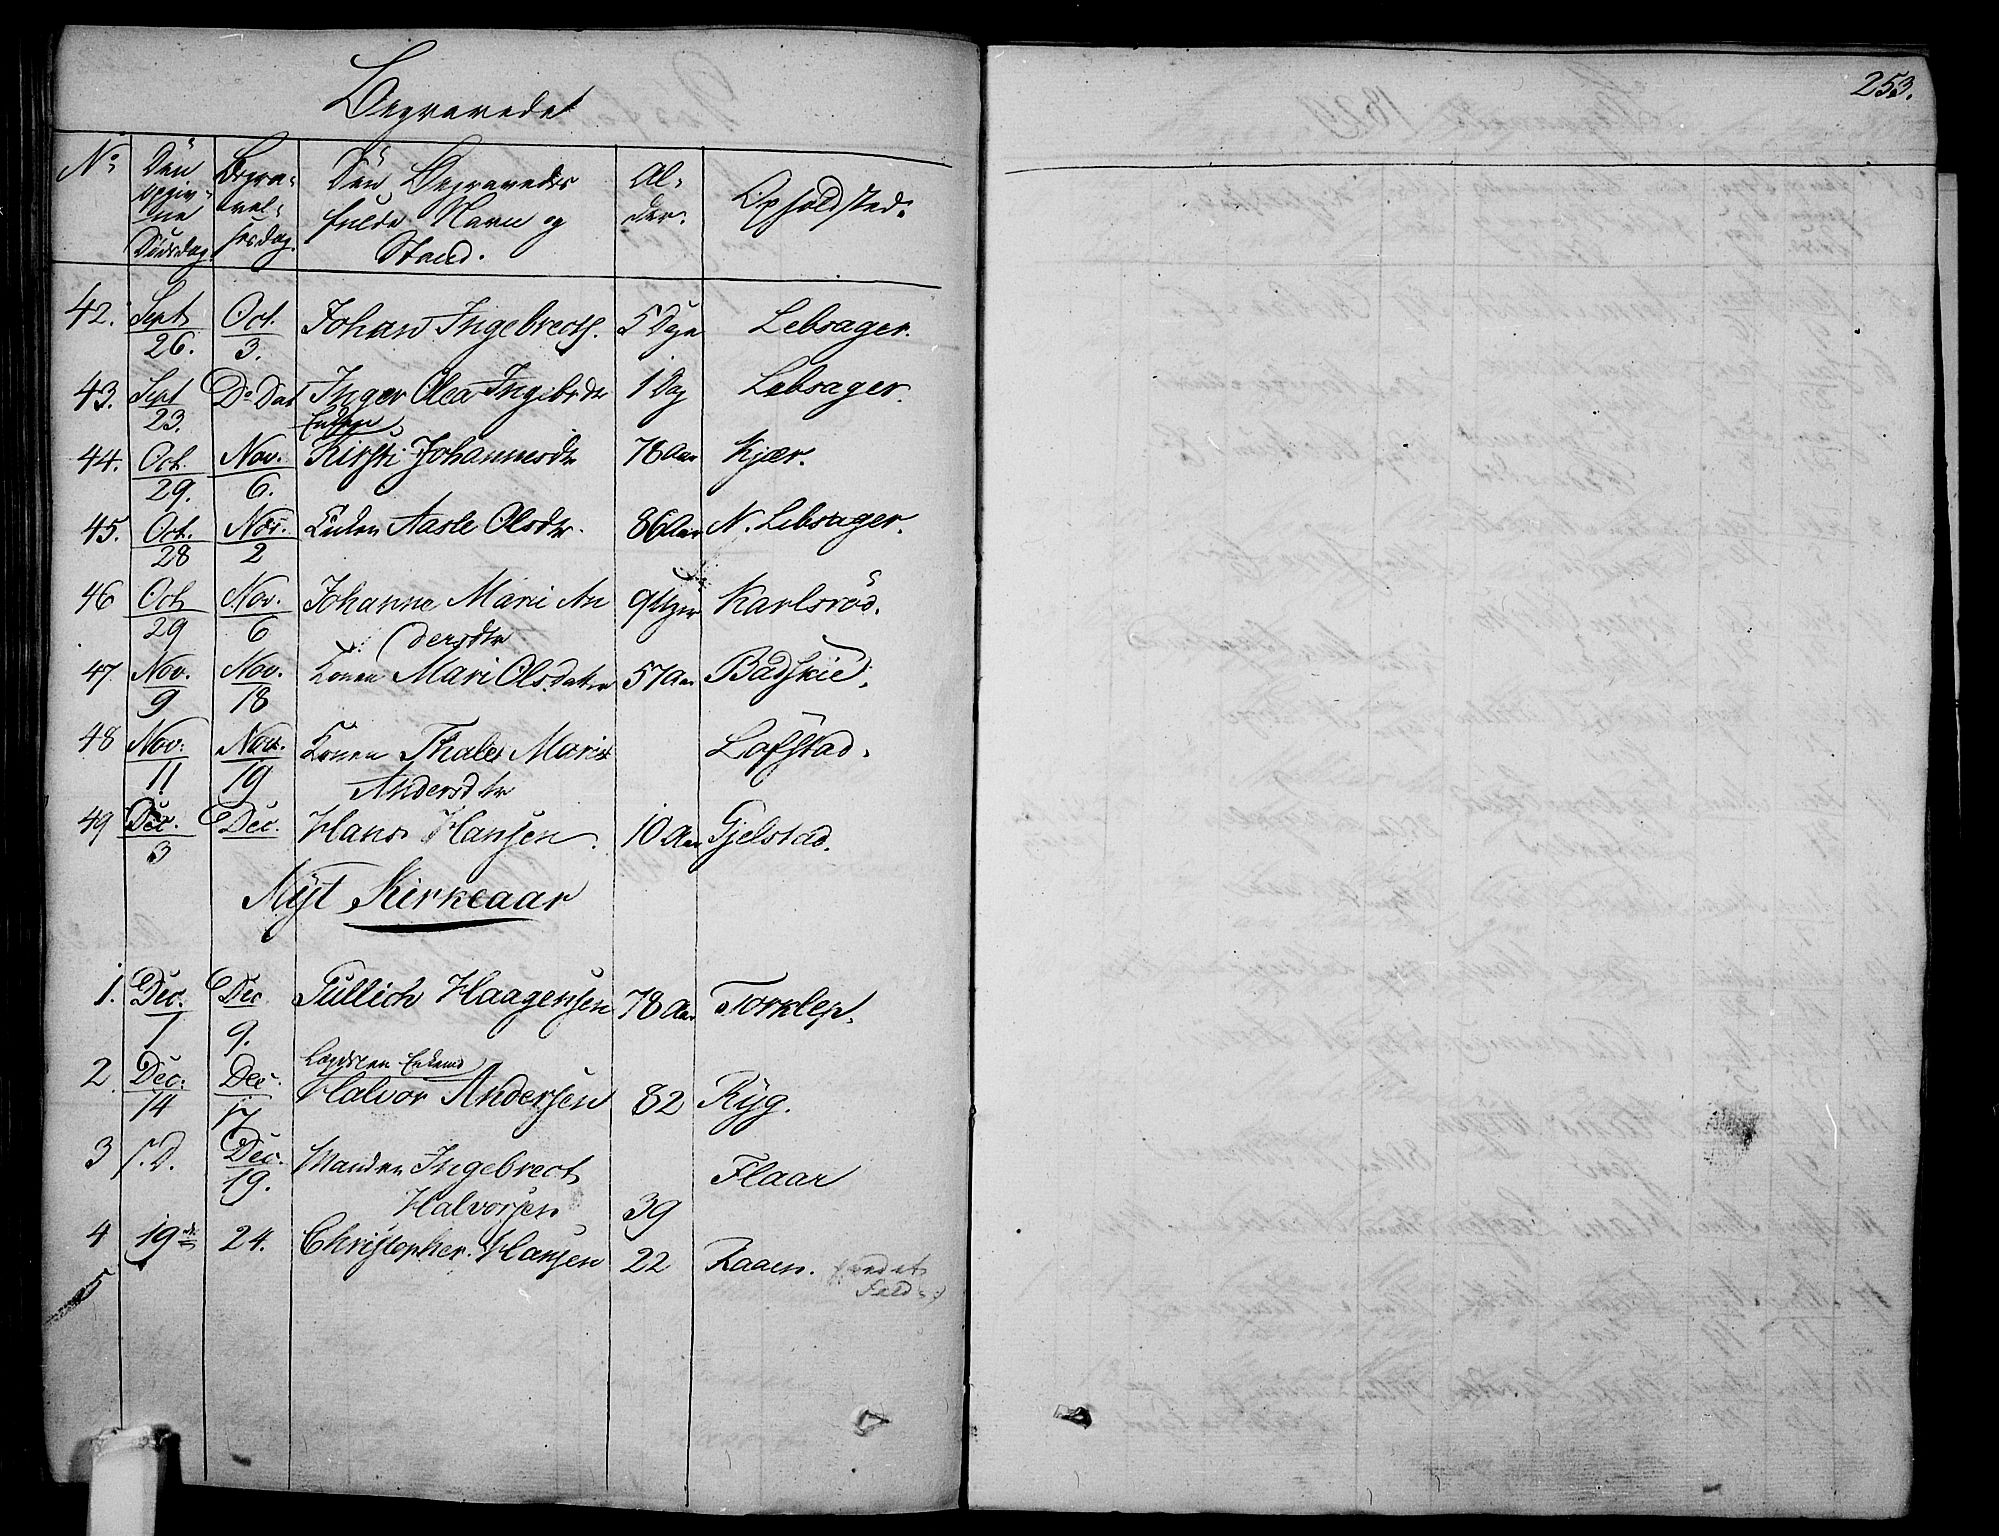 Begravede
253.
No Den opgivne Dødsdag. Begravelsesdag Den Begravedes fulde Navn og Stand. Alder. Opholdsted.
42. Sept 26. Oct. 3. Johan Ingebrects. 5 Dage Lebsager.
43. Sept 23. Do Dat Inger Olea Ingebrdr 1 Dag Lebsager.
Enken
44. Oct. 29. Nov. 6. Kirsti Johannesdr 78 Aar Kjær.
45. Oct. 28 Nov. 2 Enken Aasle Olsdr. 86 Aar N. Lebsager.
46 Oct 29 Nov. 6 Johanne Marie An 9 Uger Karlsrød.
dersdtr
47. Nov. 9 Nov. 18 Konen Mari Olsdatter 57 Aar Bådskie.
48 Nov. 11 Nov. 19 Konen Thale Marie Lofstad.
Andersdtr
49 Dec. 3 Dec. Hans Hansen. 10 Aar Gjelstad.
Nyt Kirkeaar
1. Dec. 1 Dec 9. Tullich Haagensen 78 Aar Torklep.
Enkemd
2. Dec. 14 Dec. 17 Halvor Andersen 82 Ryg.
3 s. D. Dec. 19. Manden Ingebrect Flaar
Halvorsen 39
4 19de 24. Christopher Hansen 22 Raaen.
5